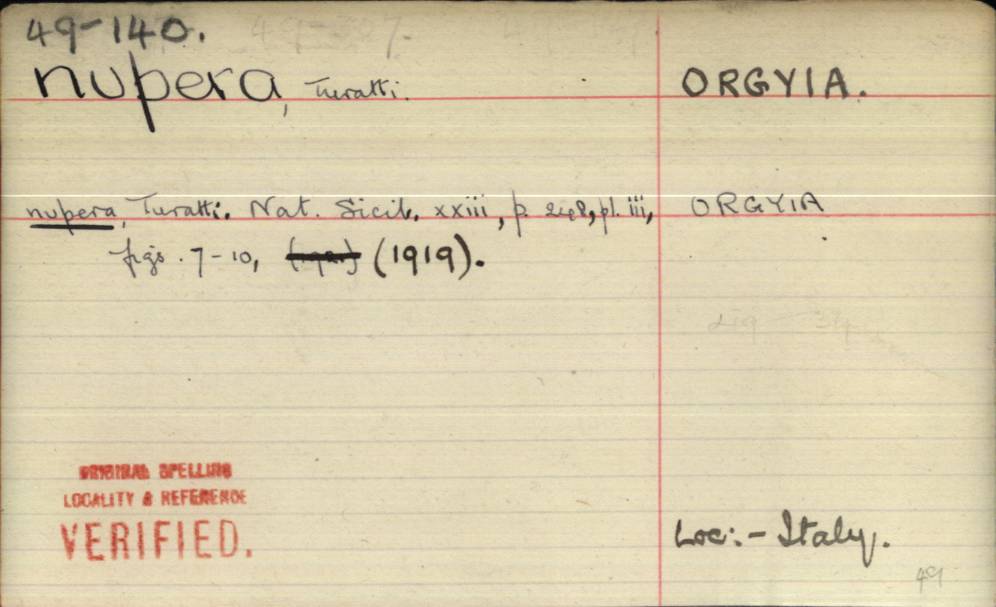 49-140.
nupera, Turatti. ORGYIA.
nupera, Turatti. Nat. Sicil. xxiii, p. 248, pl. iii, ORGYIA
figs. 7-10, (1919).
ORIGINAL SPELLING
LOCALITY & REFERENCE
VERIFIED.
Loc:- Italy.
49